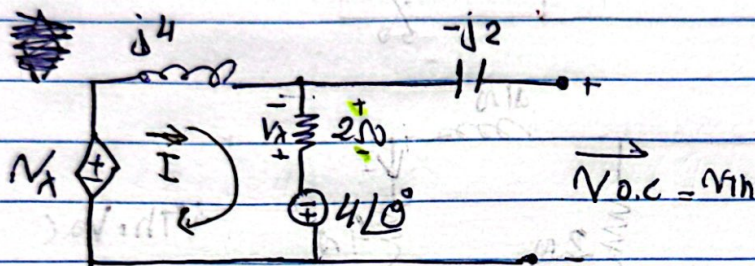 j4 -j2
- + +
Vx 2Ω
+ -
Vx + I 4∠0° Vo.c = VTh
-